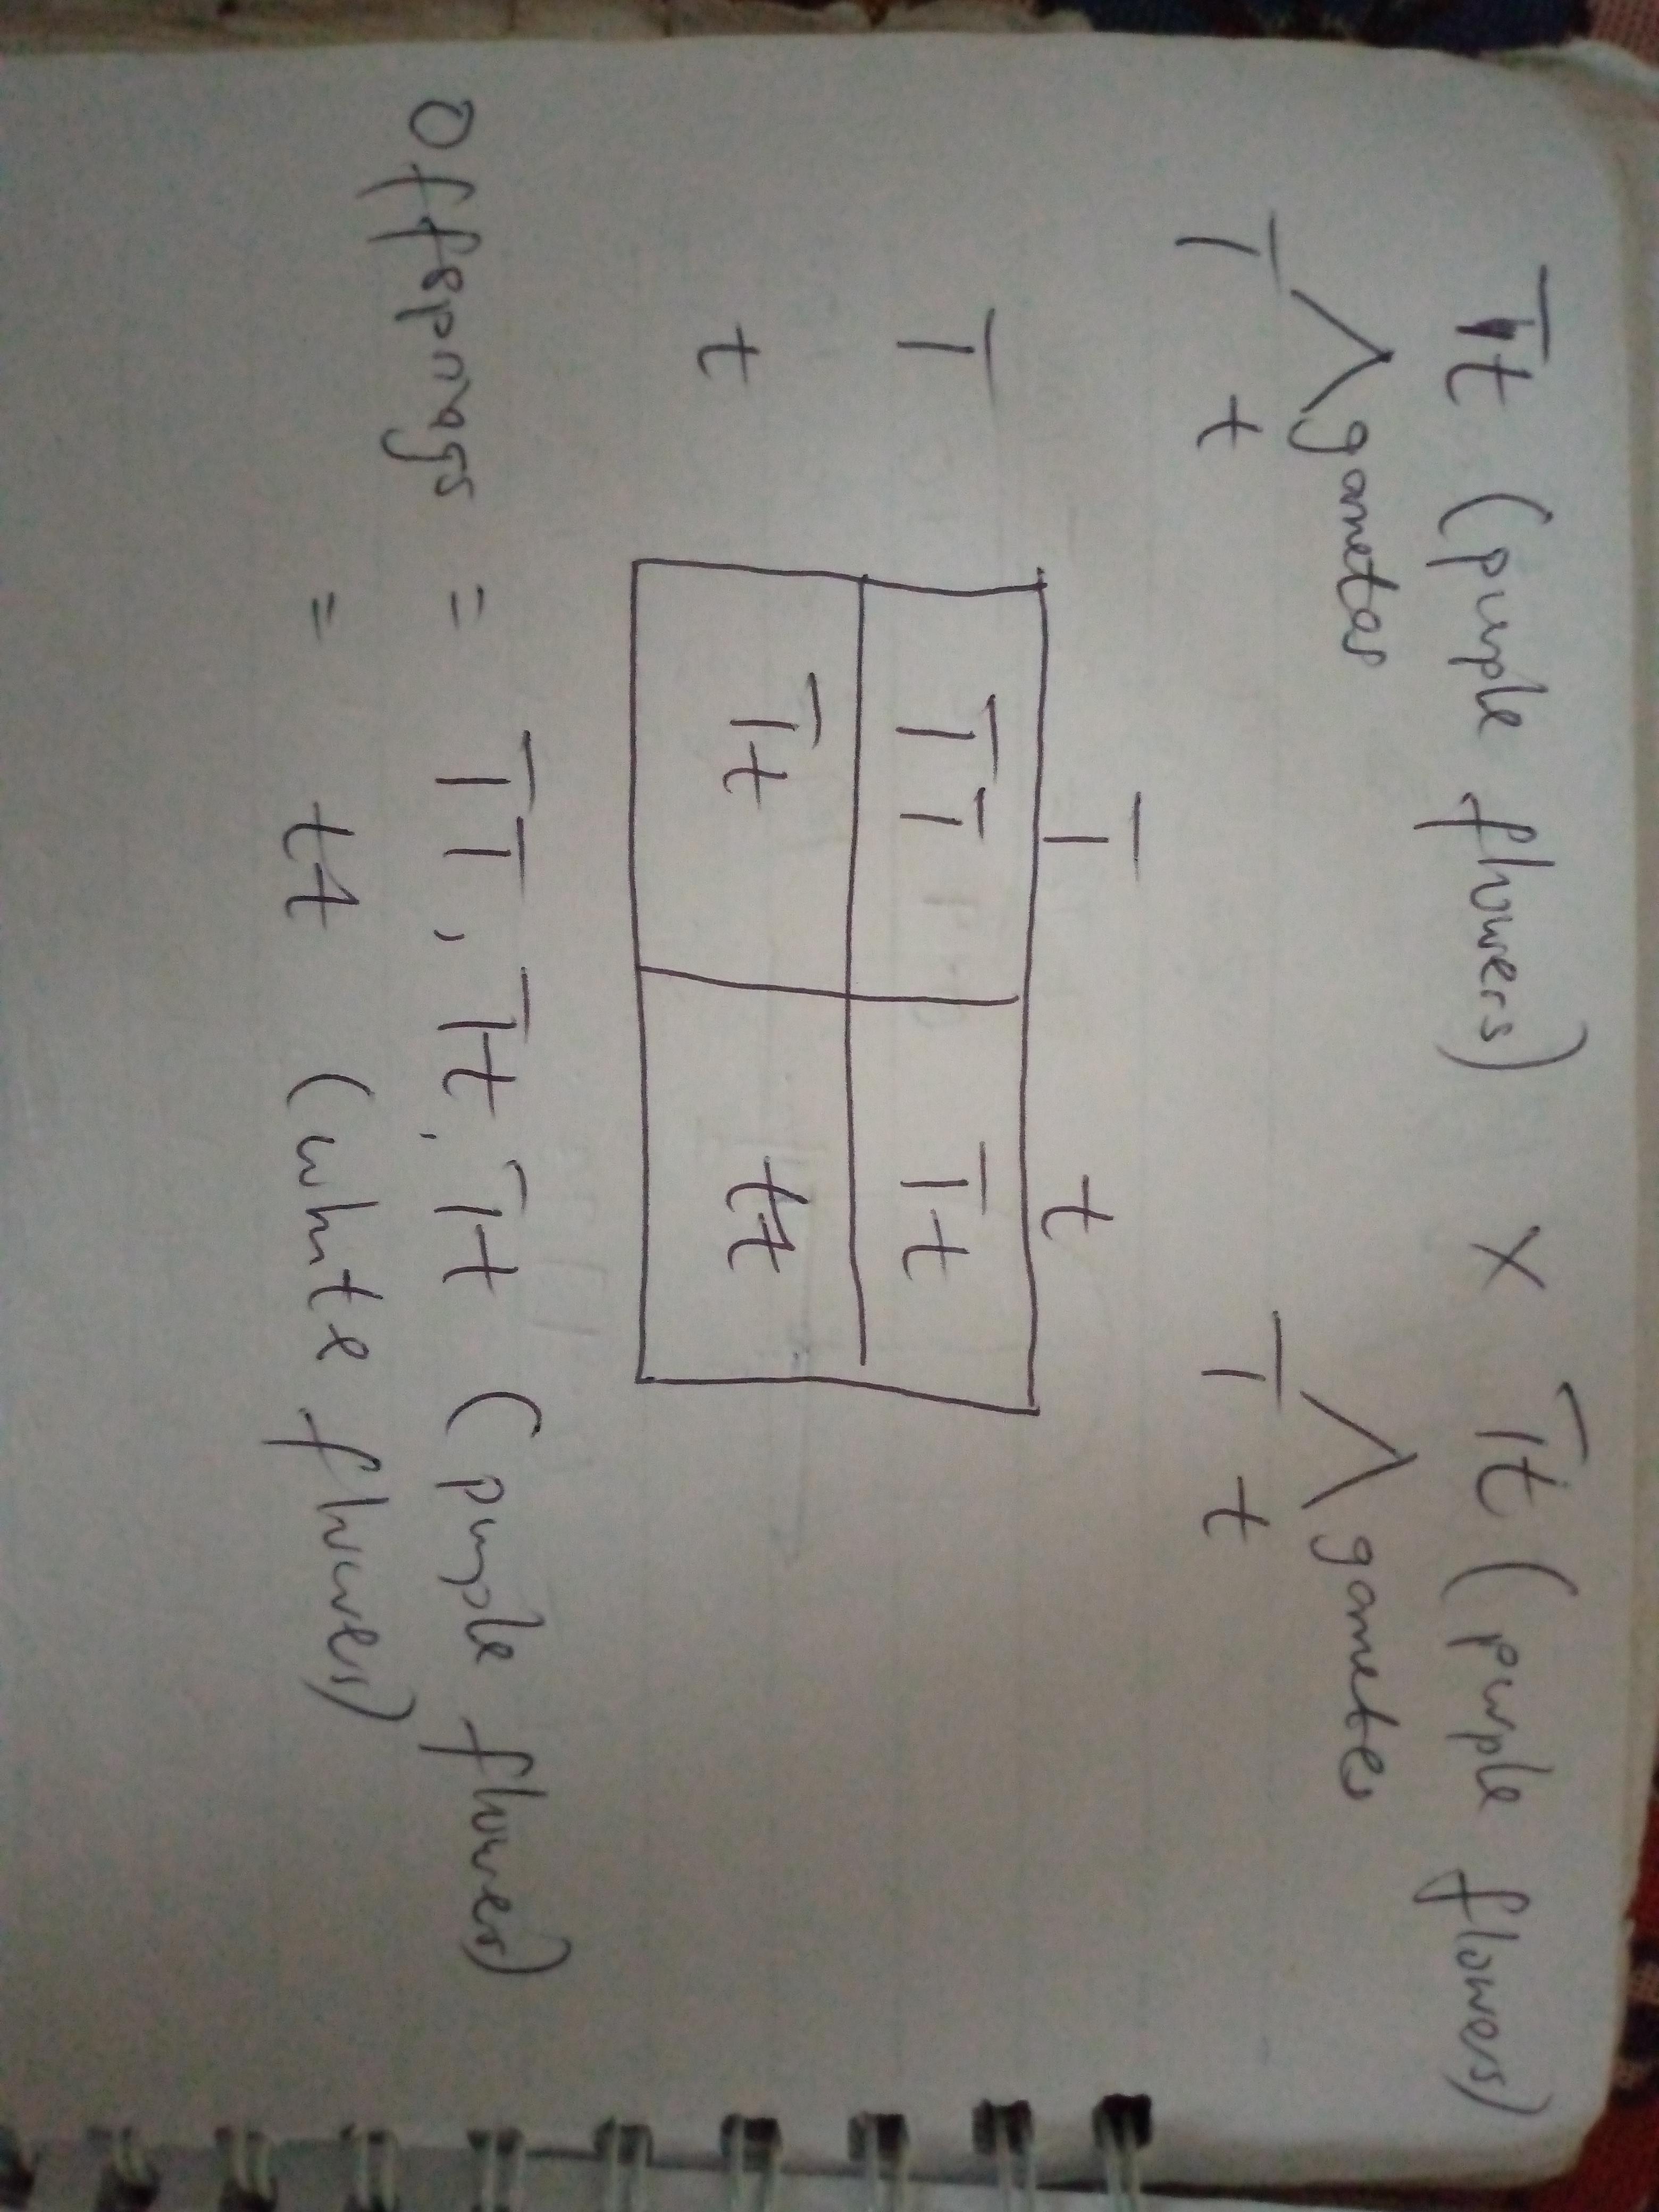 Tt (purple flowers) x Tt (purple flowers)
gametes gametes
T t T t
T t
T TT Tt
t Tt tt
Offsprings = TT, Tt, Tt (purple flower)
= tt (white flower)